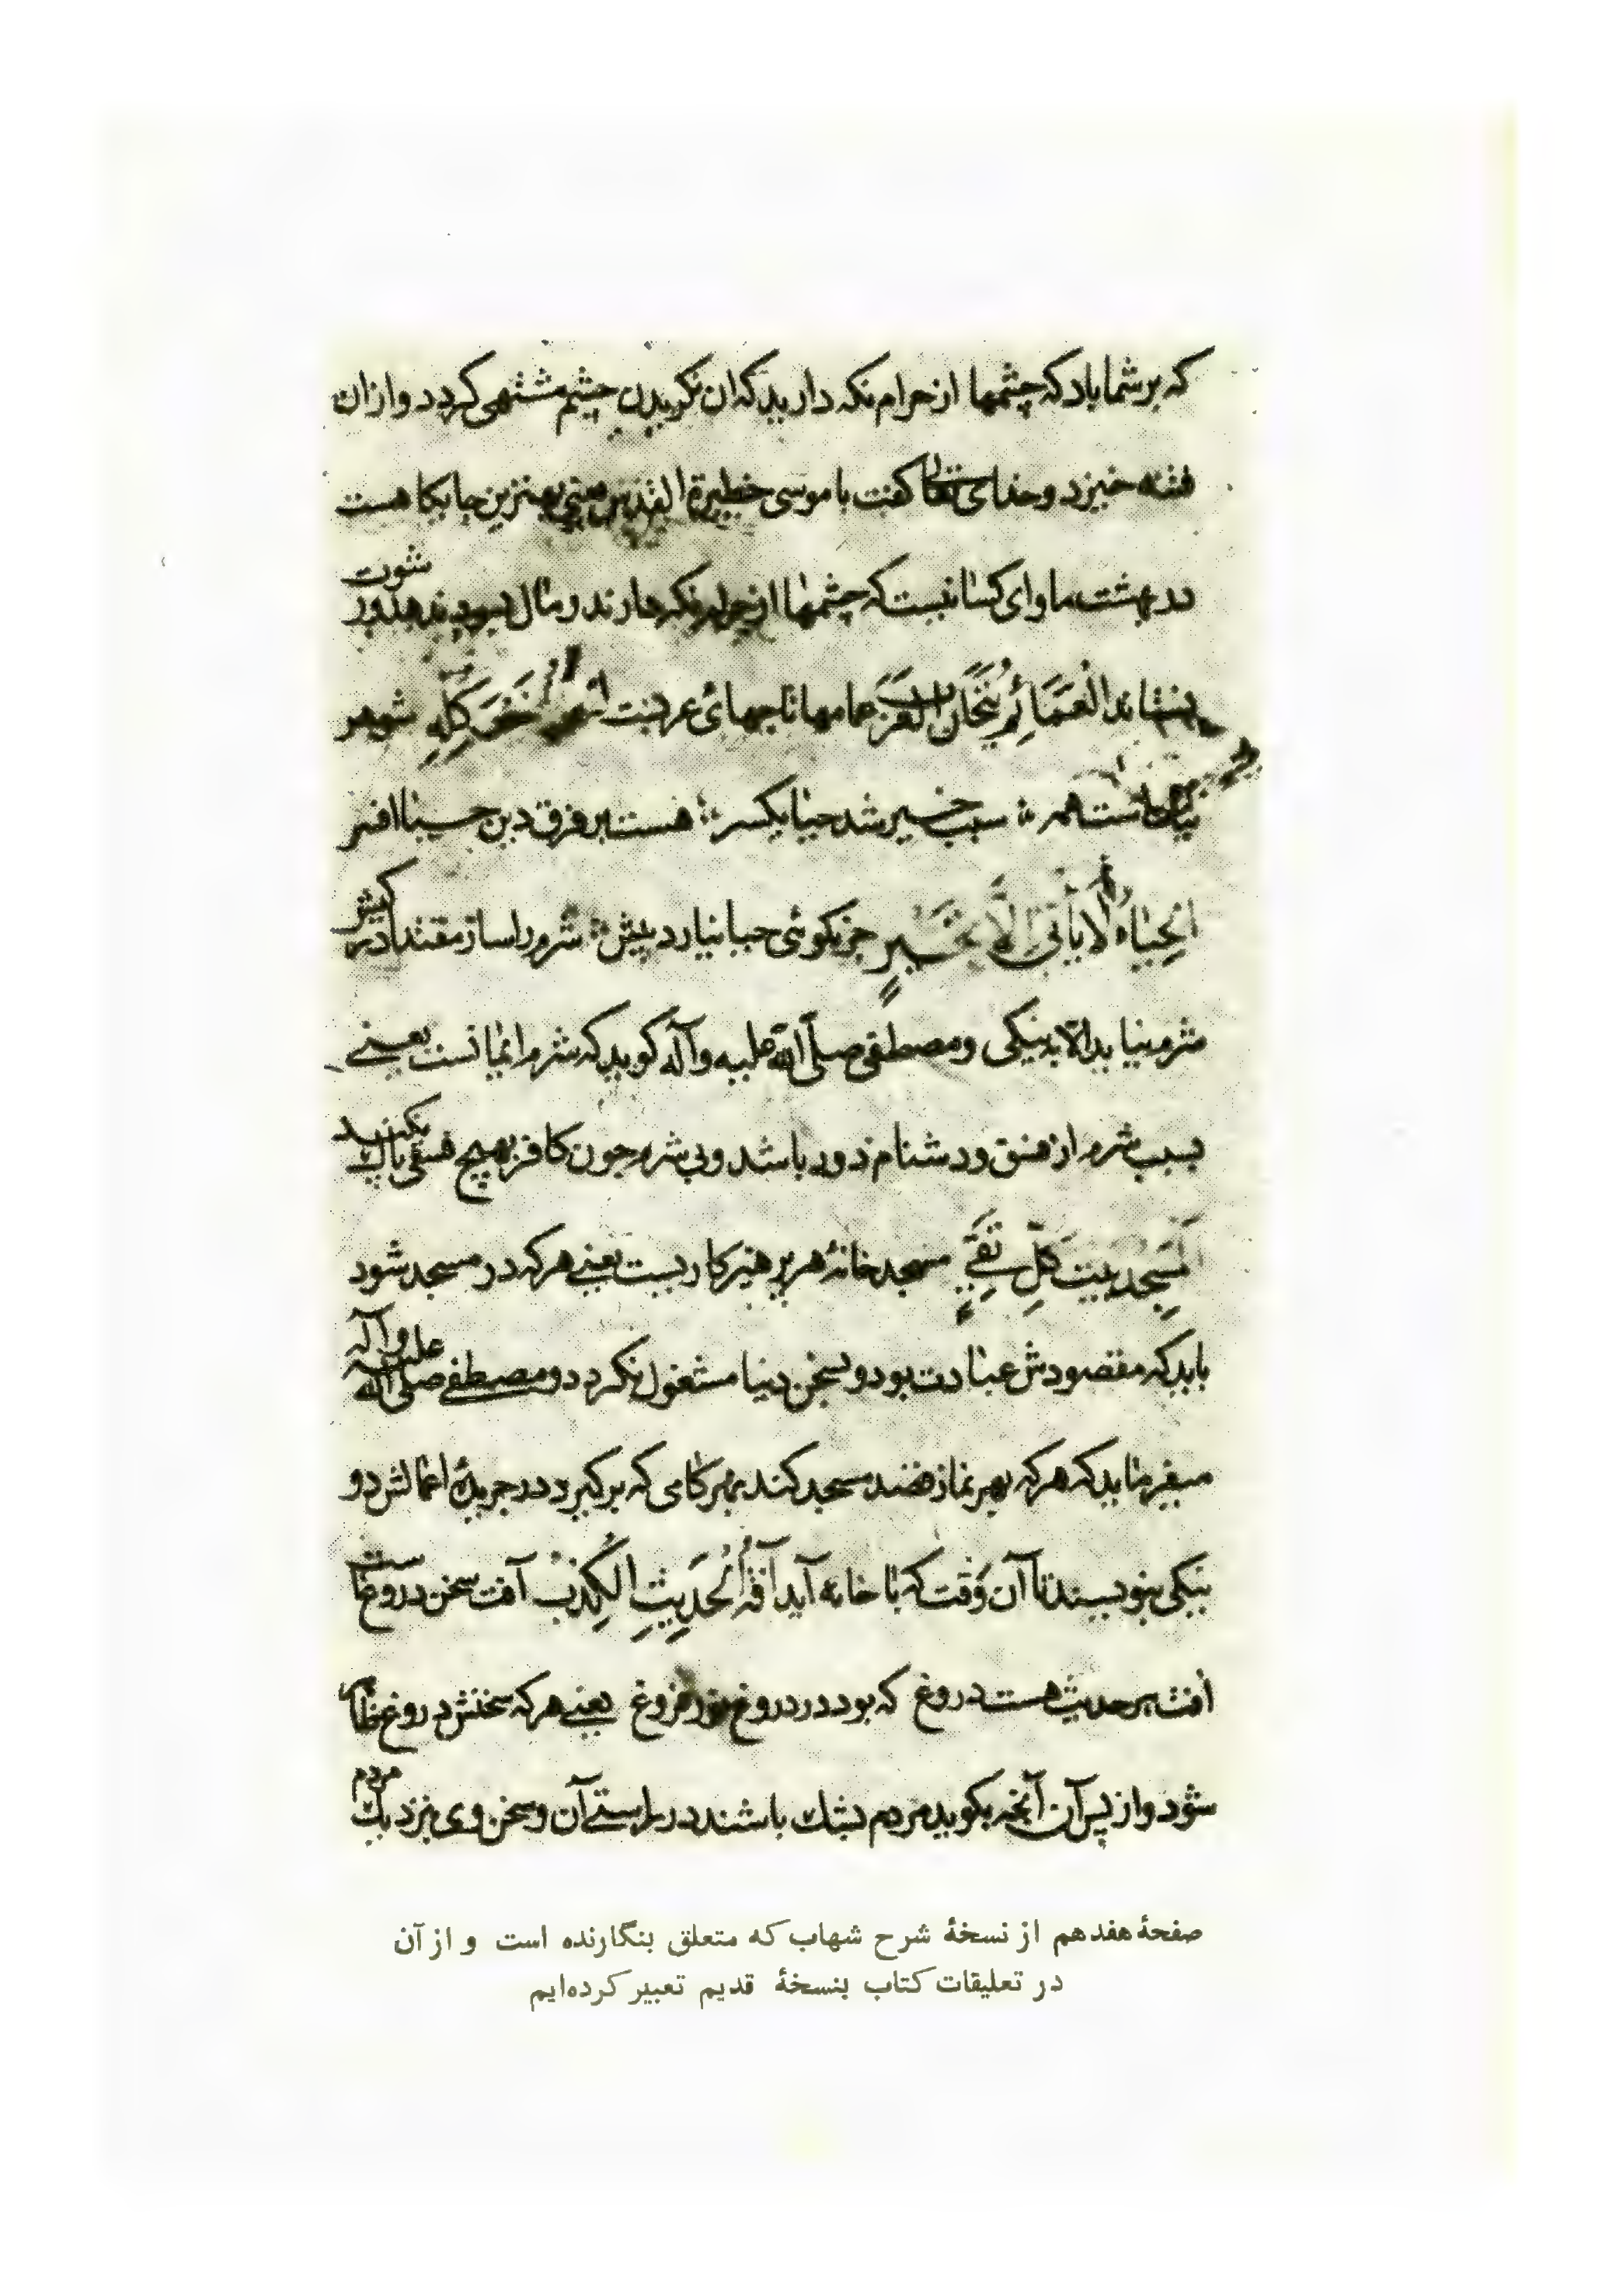 که بر شما باد که چشمها از حرام نکه دارید که ان نکریدن چشم مشتهی کردد و از ان
فتنه خیزد و خدای تعالی کفت با موسی خطیرة القدس یعنی بهترین جایکاهست
در بهشت ماوای کسانیست که چشمها از حرام نکه دارند و مال بسود ندهند و رشوت
نستانند الْعَمَائِمُ تِیجَانُ الْعَرَبِ عمامها تاجهای عربست خَیْرٌ كُلُّهِ شرم هر
نیکوست همه سبب خیر شد حیا یکسر هست بر فرق دین حیا افسر
الْحَیَاءُ لَا یَأْتِي إِلَّا بِخَیْرٍ جز نکوئی حیا نیارد پیش شرم را ساز مقتدا در کیش
شرم نیاید الا به نیکی و مصطفی صلی الله علیه و آله کوید که شرم از ایمانست یعنی
بسبب شرم از فسق و دشنام دور باشد و بی شرم چون کافر بهیچ فسقی باک نکند
الْمَسْجِدُ بَیْتُ كُلِّ تَقِيٍّ مسجد خانهٔ هر پرهیزکاریست یعنی هر که در مسجد شود
باید که مقصودش عبادت بود و بسخن دنیا مشغول نکردد و مصطفی صلی الله علیه و آله
میفرماید که هر که بهر نماز قصد مسجد کند بهر کامی که برکیرد در جریدهٔ اعمالش دو
نیکی بنویسند تا آن وقت که با خانه آید آفَةُ الْحَدِیثِ الْكِذْبُ آفت سخن دروغست
آفت هر حدیث هست دروغ که بود در دروغ فروغ یعنی هر که سخنش دروغ
شود و از پس آن آنچه بکوید مردم بشک باشند در راستی آن و سخن وی نزدیک مردم
صفحهٔ هفدهم از نسخهٔ شرح شهاب که متعلق بنگارنده است و از آن
در تعلیقات کتاب بنسخهٔ قدیم تعبیر کرده‌ایم